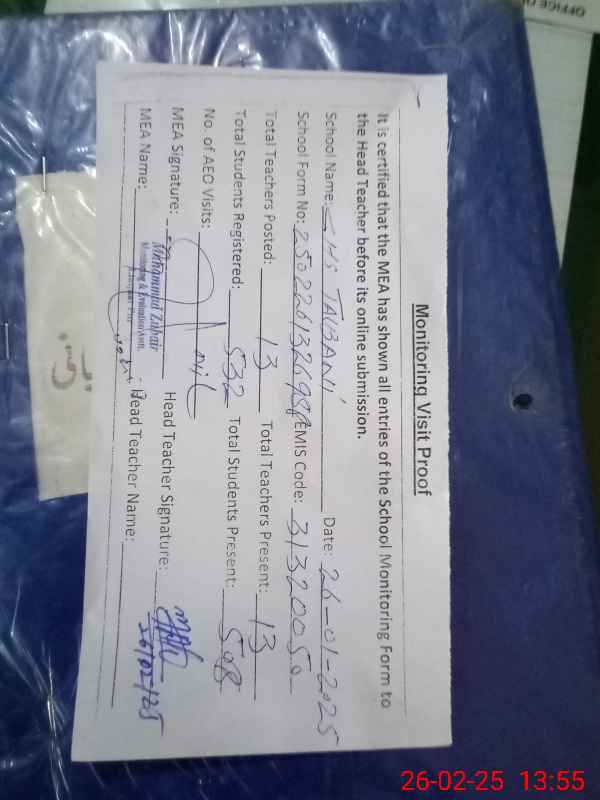 OFFICE OF
Monitoring Visit Proof
It is certified that the MEA has shown all entries of the School Monitoring Form to
the Head Teacher before its online submission.
School Name: GHS TAUBANI Date: 26-01-2025
School Form No: EMIS Code: 31320050
Total Teachers Posted: 13 Total Teachers Present: 13
Total Students Registered: 532 Total Students Present: 508
No. of AEO Visits:
MEA Signature: Head Teacher Signature:
Muhammad Zubair
Monitoring & Evaluation Asstt.
MEA Name: Head Teacher Name:
26/02/25
26-02-25 13:55